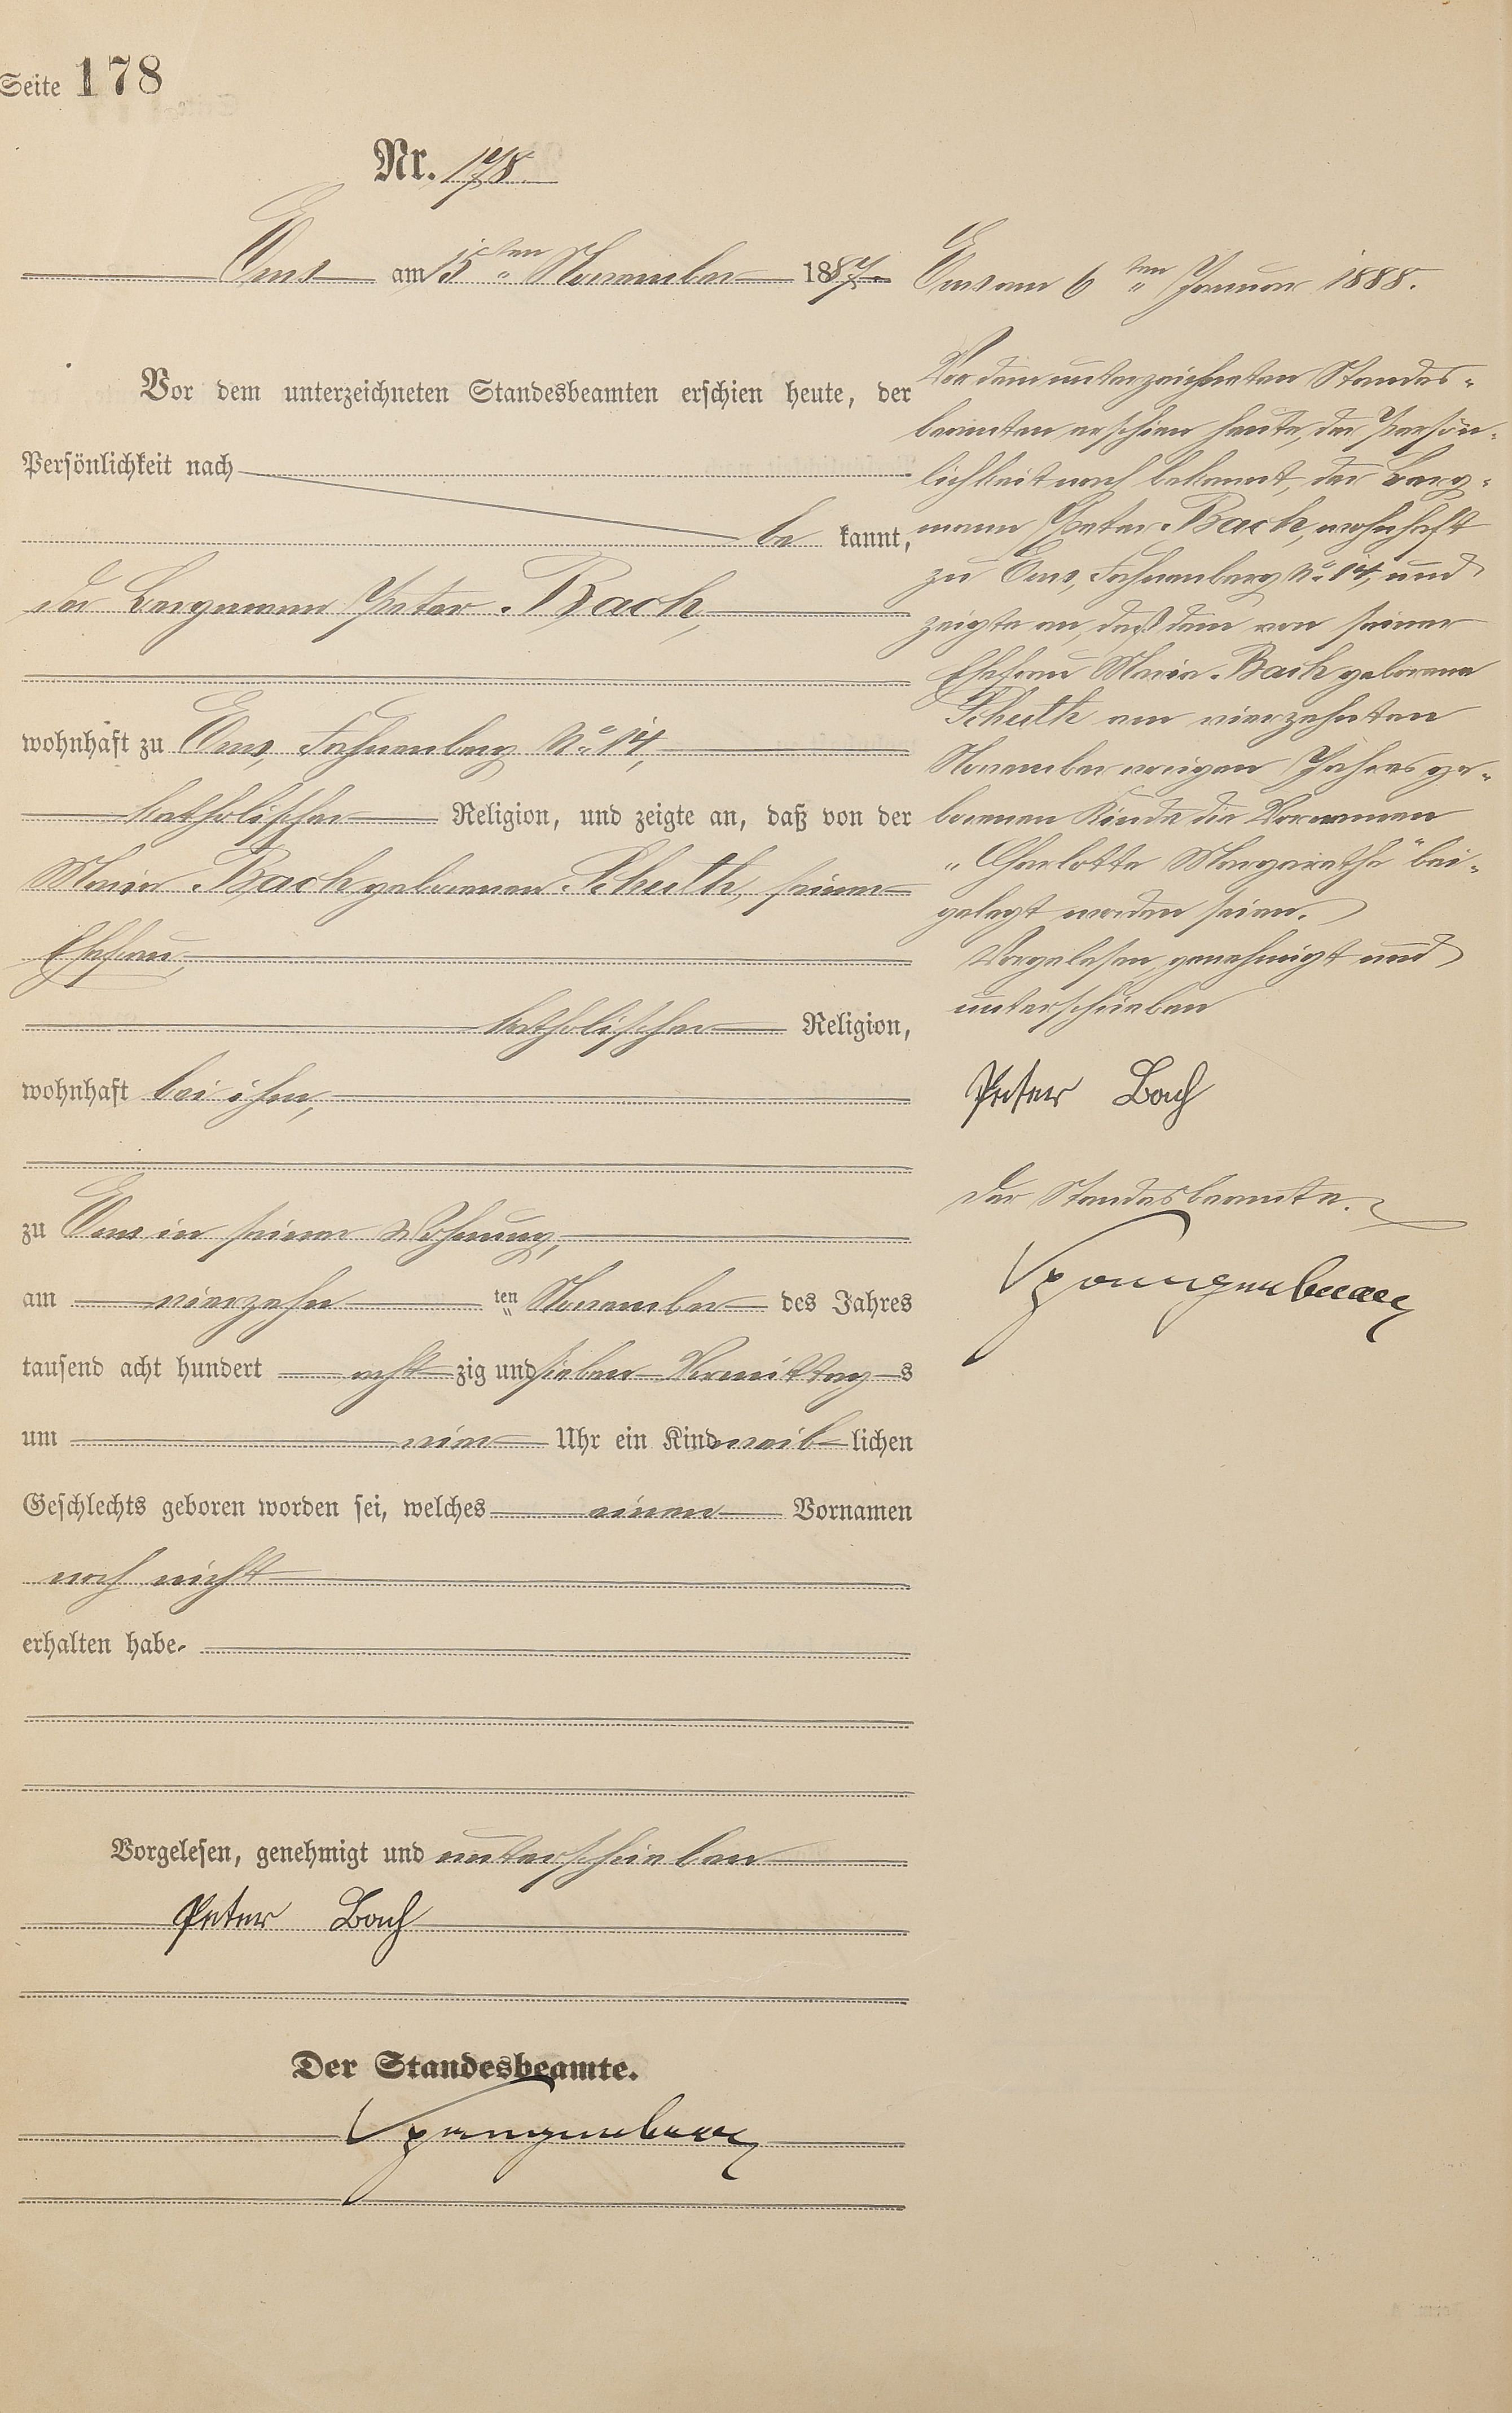 Seite 178
Nr. 178.
Ems am 15ten November 1887.
Vor dem unterzeichneten Standesbeamten erschien heute, der
Persönlichkeit nach
be kannt,
der Bergmann Peter Bach,
wohnhaft zu Ems, Fahnenberg No. 14,
katholischer Religion, und zeigte an, daß von der
Maria Bach geborenen Schuth, seiner
Ehefrau,
katholischer Religion,
wohnhaft bei ihm,
zu Ems in seiner Wohnung,
am vierzehn ten November des Jahres
tausend acht hundert acht zig und sieben Vormittag s
um vier Uhr ein Kind weib lichen
Geschlechts geboren worden sei, welches einen Vornamen
noch nicht
erhalten habe.
Vorgelesen, genehmigt und unterschrieben
Peter Bach
Der Standesbeamte.
Ems am 6ten Januar 1888.
Vor dem unterzeichneten Standes-
beamten erschien heute, der Persön-
lichkeit nach bekannt, der Berg-
mann Peter Bach, wohnhaft
zu Ems, Fahnenberg No. 14, und
zeigte an, daß dem von seiner
Ehefrau Maria Bach geborene
Schuth am vierzehnten
November vorigen Jahres ge-
borenen Kinde die Vornamen
„Charlotte Margarethe" bei-
gelegt worden seien.
Vorgelesen, genehmigt und
unterschrieben
Peter Bach
Der Standesbeamte.